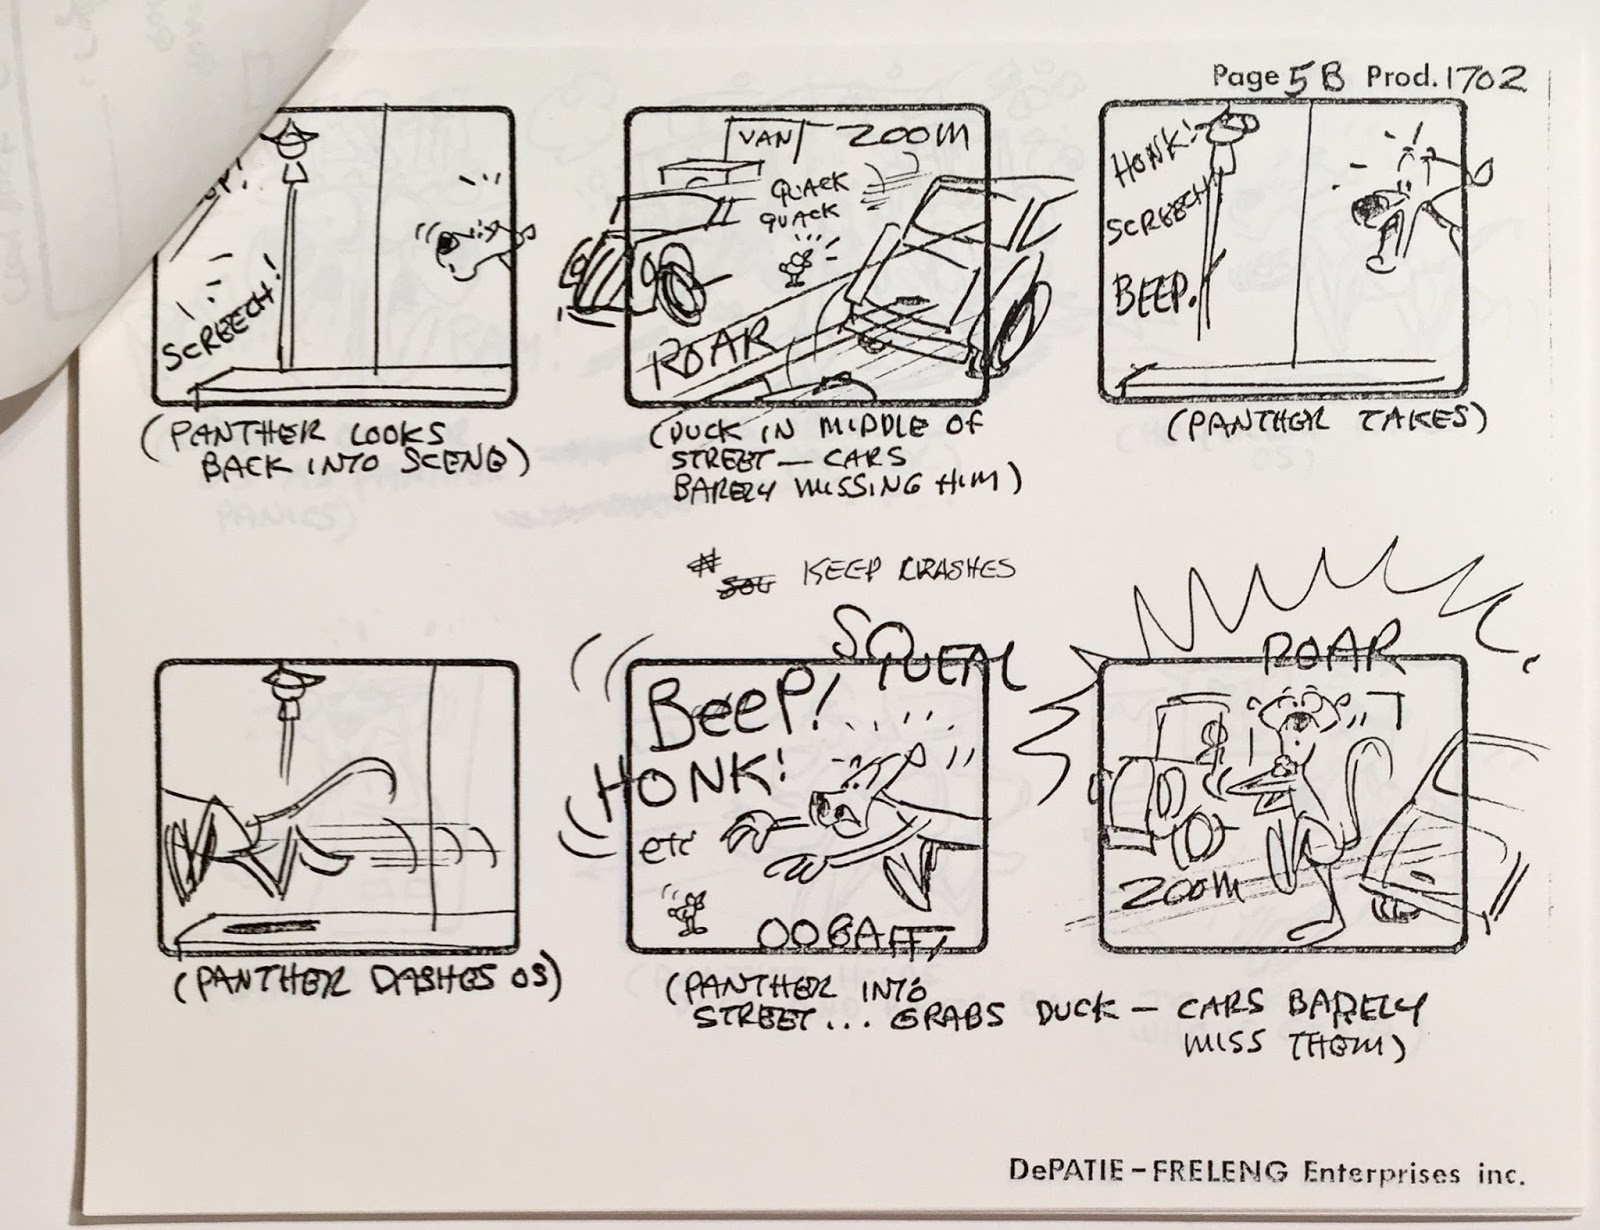 Page 5B Prod. 1702
SCREECH!
(PANTHER LOOKS
BACK INTO SCENE)
VAN
ZOOM
QUACK
QUACK
ROAR
(DUCK IN MIDDLE OF
STREET — CARS
BARELY MISSING HIM)
HONK!
SCREECH
BEEP.
(PANTHER TAKES)
KEEP CRASHES
(PANTHER DASHES OS)
SQUEAL
BEEP!
HONK!
etc
OOGAH
(PANTHER INTO
STREET... GRABS DUCK — CARS BARELY
MISS THEM)
ROAR
ZOOM
DePATIE–FRELENG Enterprises inc.